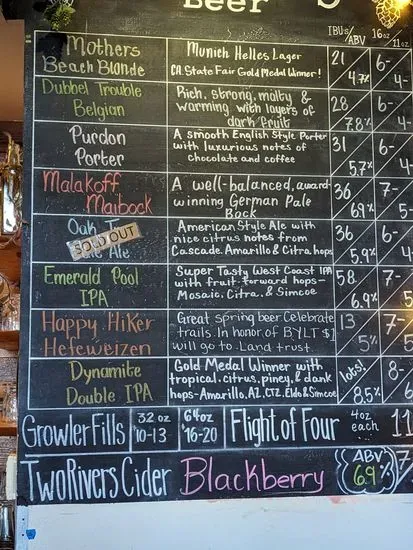 Beer
IBUs/ABV 16oz 11oz
Mothers Beach Blonde
Munich Helles Lager
CA. State Fair Gold Medal Winner!
21 4.7% 6- 4-
Dubbel Trouble Belgian
Rich, strong, malty &
warming with layers of
dark fruit
28 7.8% 6- 4-
Purdon Porter
A smooth English Style Porter
with luxurious notes of
chocolate and coffee
31 5.7% 6- 4-
Malakoff Maibock
A well-balanced, award
winning German Pale
Bock
36 6.9% 7- 5-
Oak
SOLD OUT
Ale
American Style Ale with
nice citrus notes from
Cascade, Amarillo & Citra hops
36 5.9% 6- 4-
Emerald Pool IPA
Super Tasty West Coast IPA
with fruit-forward hops-
Mosaic, Citra, & Simcoe
58 6.9%
Happy Hiker Hefeweizen
Great spring beer Celebrate
trails. In honor of BYLT $1
will go to Land trust.
13 5% 7- 5-
Dynamite Double IPA
Gold Medal Winner with
tropical, citrus, piney, & dank
hops-Amarillo, AZ, CTZ, Eldo & Simcoe
lots! 8.5% 8- 6-
Growler Fills 32oz 10-13 64oz 16-20 Flight of Four 4oz each 11
Two Rivers Cider Blackberry ABV 6.9% 7-